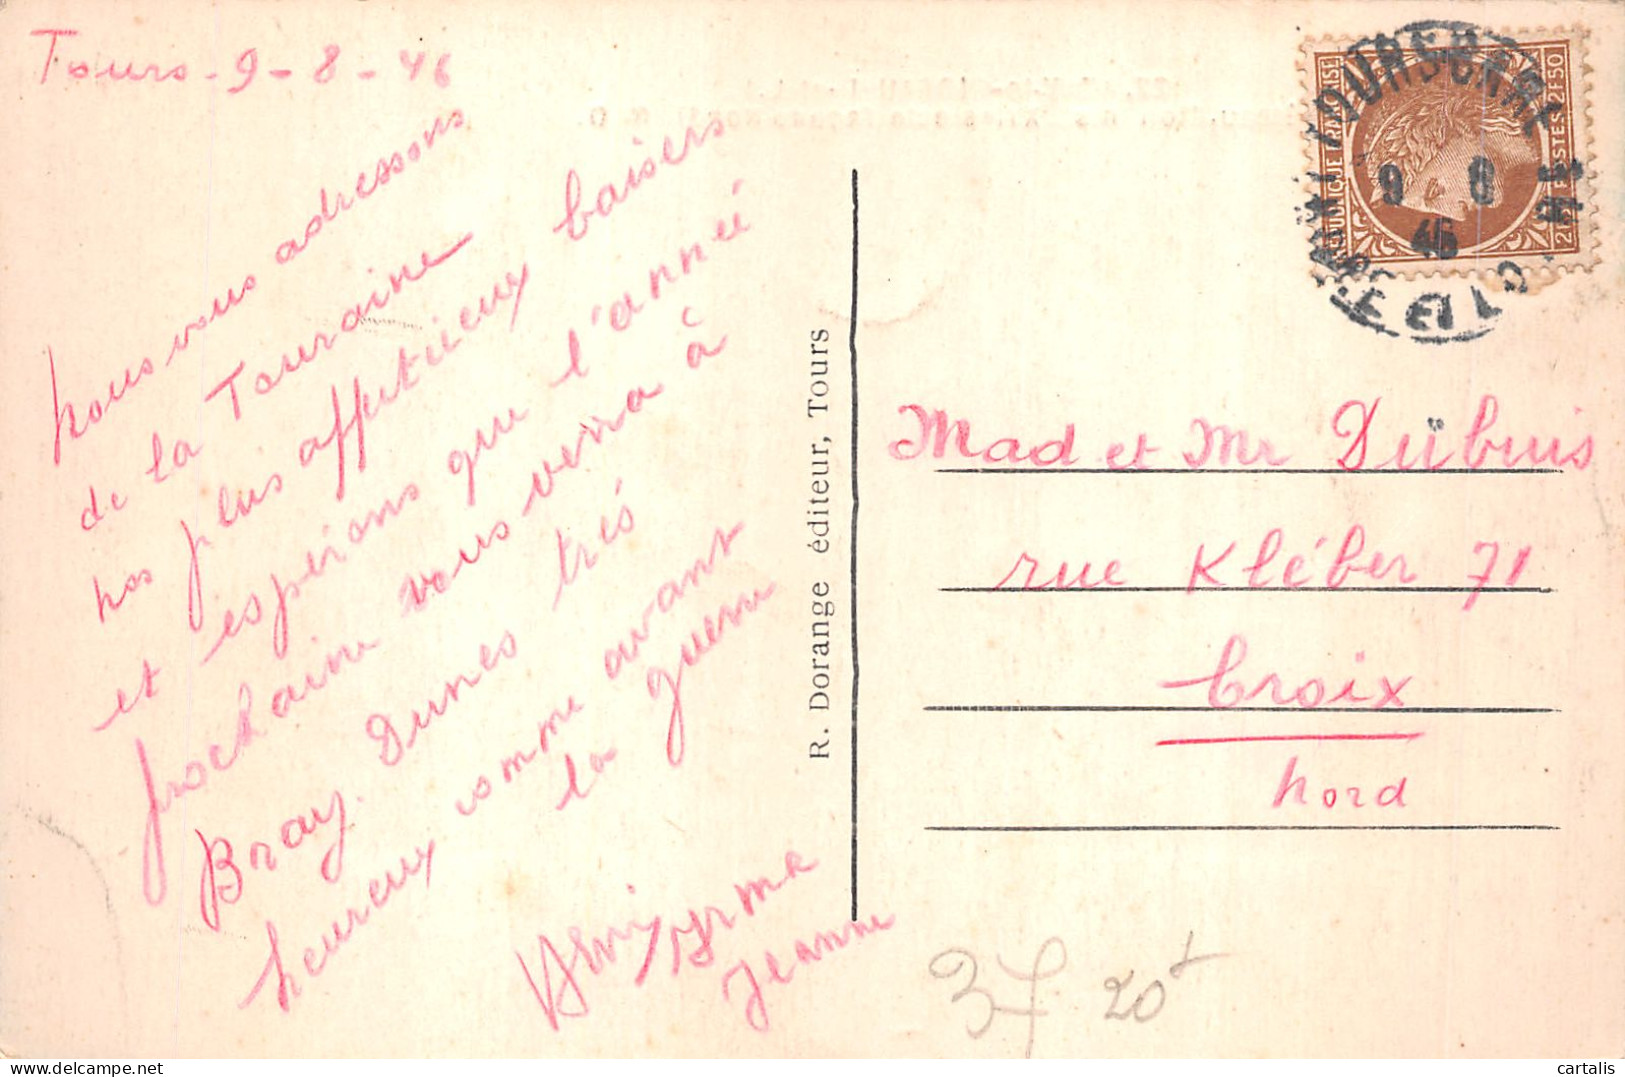 Tours - 9 - 8 - 46
nous vous adressons
de la Touraine
nos plus affectieux baisers
et espérons que l'année
prochaine vous verra à
Bray. Dunes très
heureux comme avant
la guerre
Henri Irma
Jeanne
R. Dorange éditeur, Tours
RÉPUBLIQUE FRANÇAISE
POSTES 2F50
TOURS GARE
9 8
46
Mad et Mr Dubuis
rue Kléber 71
Croix
nord
37 20
cartalis